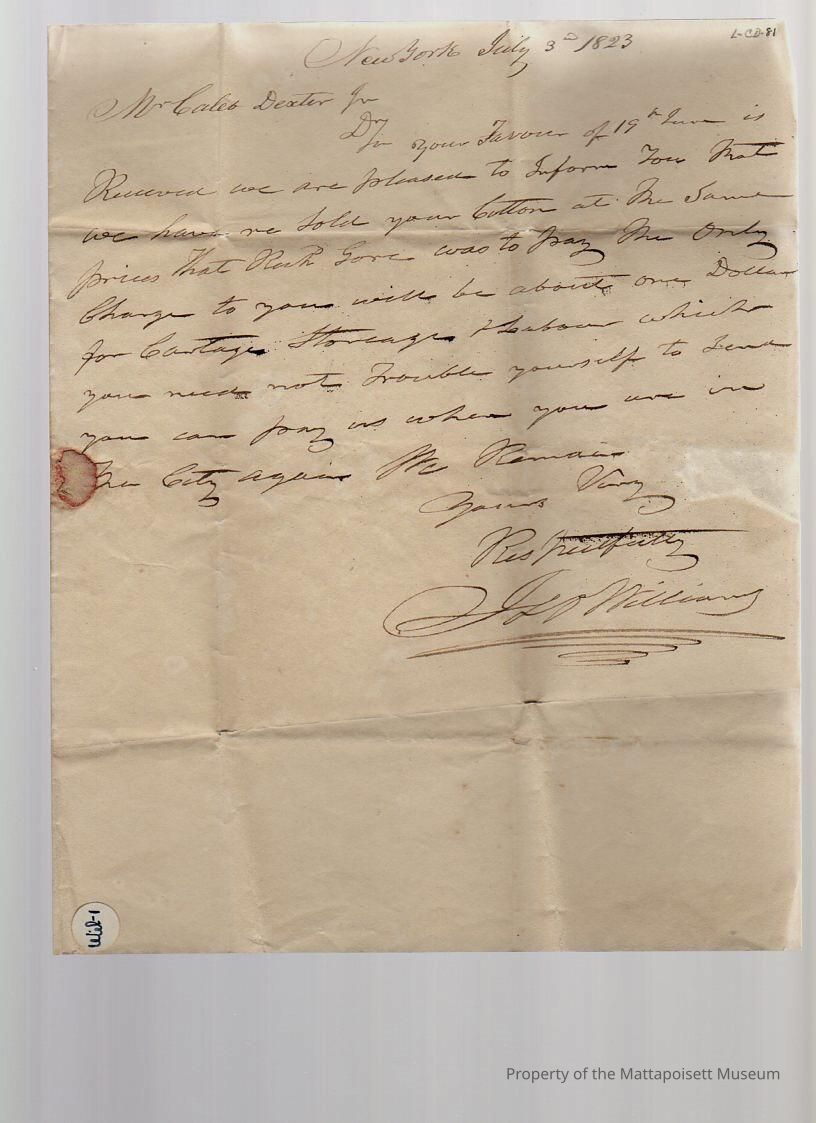 L-CD-81
New York July 3d 1823
Mr Caleb Dexter Jr
Dr Sir your Favour of 19th June is
Received we are pleased to Inform You that
we have re sold your Cotton at the Same
prices that Gore was to pay the Only
Charge to you will be about one Dollar
for Cartage Storeage & Labour which
you need not Trouble yourself to Send
you can pay us when you are in
the City again We Remain
Yours Very
Respectfully
Williams
Wil-1
Property of the Mattapoisett Museum